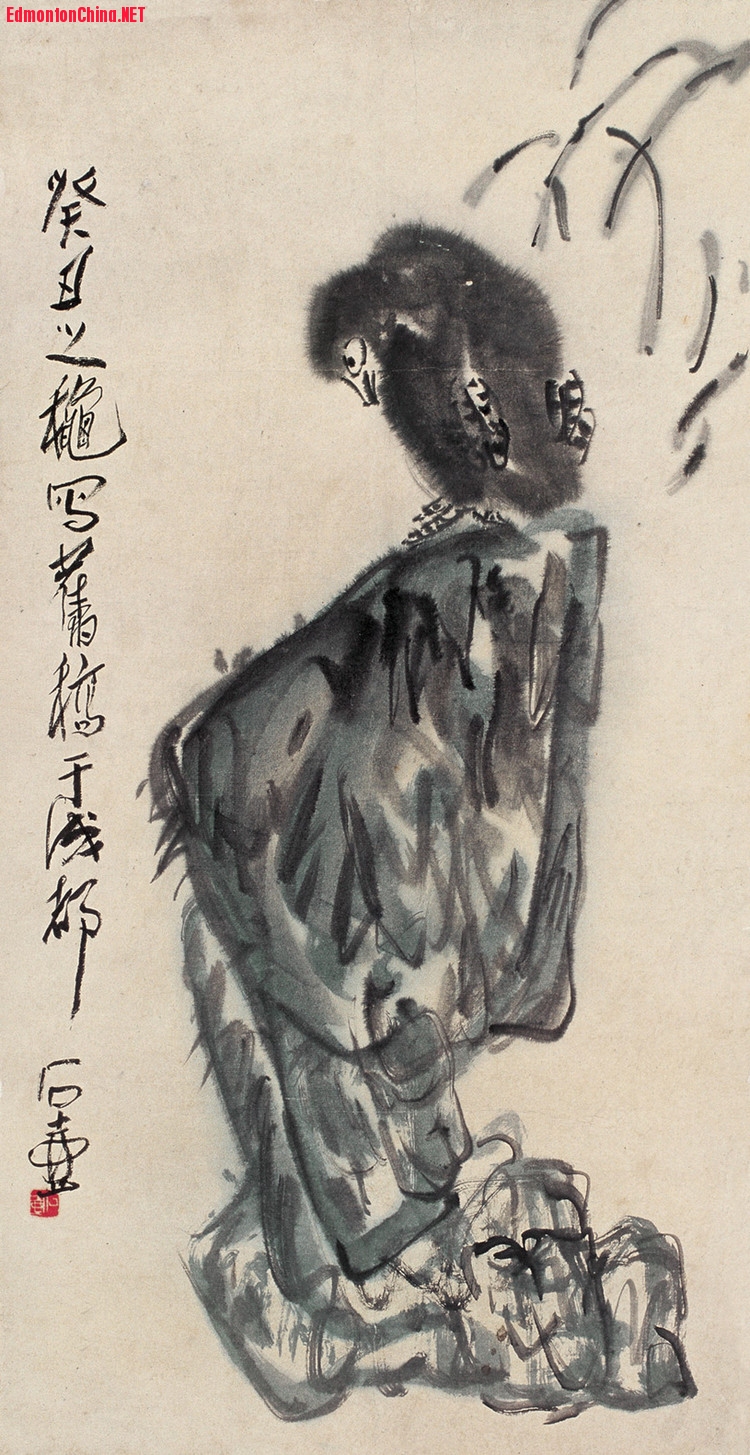 EdmontonChina.NET
癸丑之龝写舊稿于成都
石壶